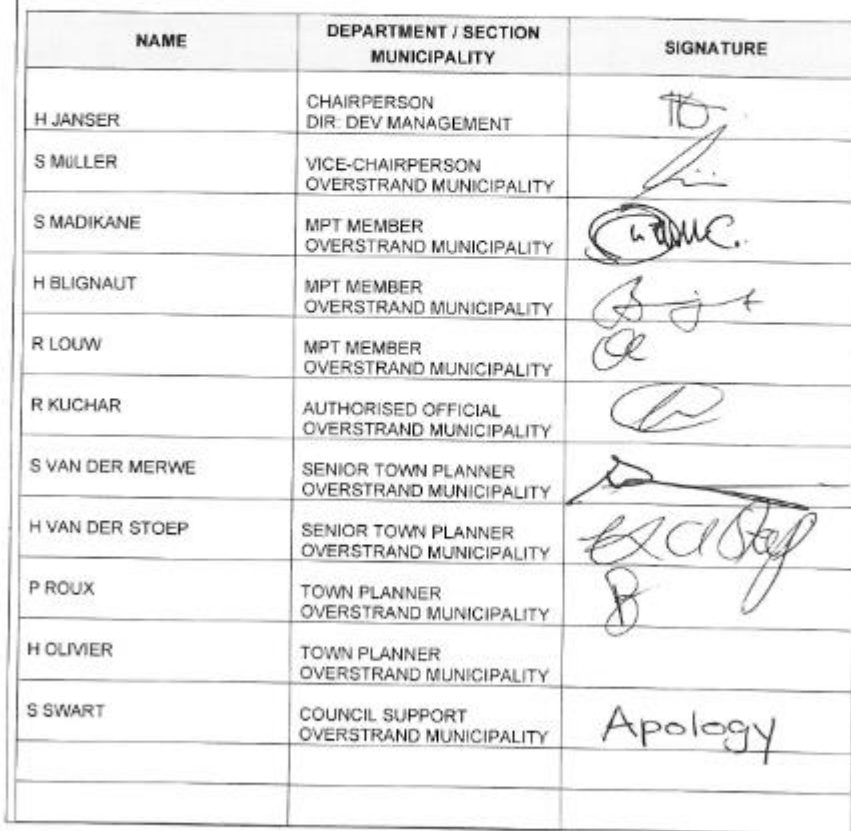 NAME
DEPARTMENT / SECTION
MUNICIPALITY
SIGNATURE
H JANSER
CHAIRPERSON
DIR: DEV MANAGEMENT
S MüLLER
VICE-CHAIRPERSON
OVERSTRAND MUNICIPALITY
S MADIKANE
MPT MEMBER
OVERSTRAND MUNICIPALITY
H BLIGNAUT
MPT MEMBER
OVERSTRAND MUNICIPALITY
R LOUW
MPT MEMBER
OVERSTRAND MUNICIPALITY
R KUCHAR
AUTHORISED OFFICIAL
OVERSTRAND MUNICIPALITY
S VAN DER MERWE
SENIOR TOWN PLANNER
OVERSTRAND MUNICIPALITY
H VAN DER STOEP
SENIOR TOWN PLANNER
OVERSTRAND MUNICIPALITY
P ROUX
TOWN PLANNER
OVERSTRAND MUNICIPALITY
H OLIVIER
TOWN PLANNER
OVERSTRAND MUNICIPALITY
S SWART
COUNCIL SUPPORT
OVERSTRAND MUNICIPALITY
Apology